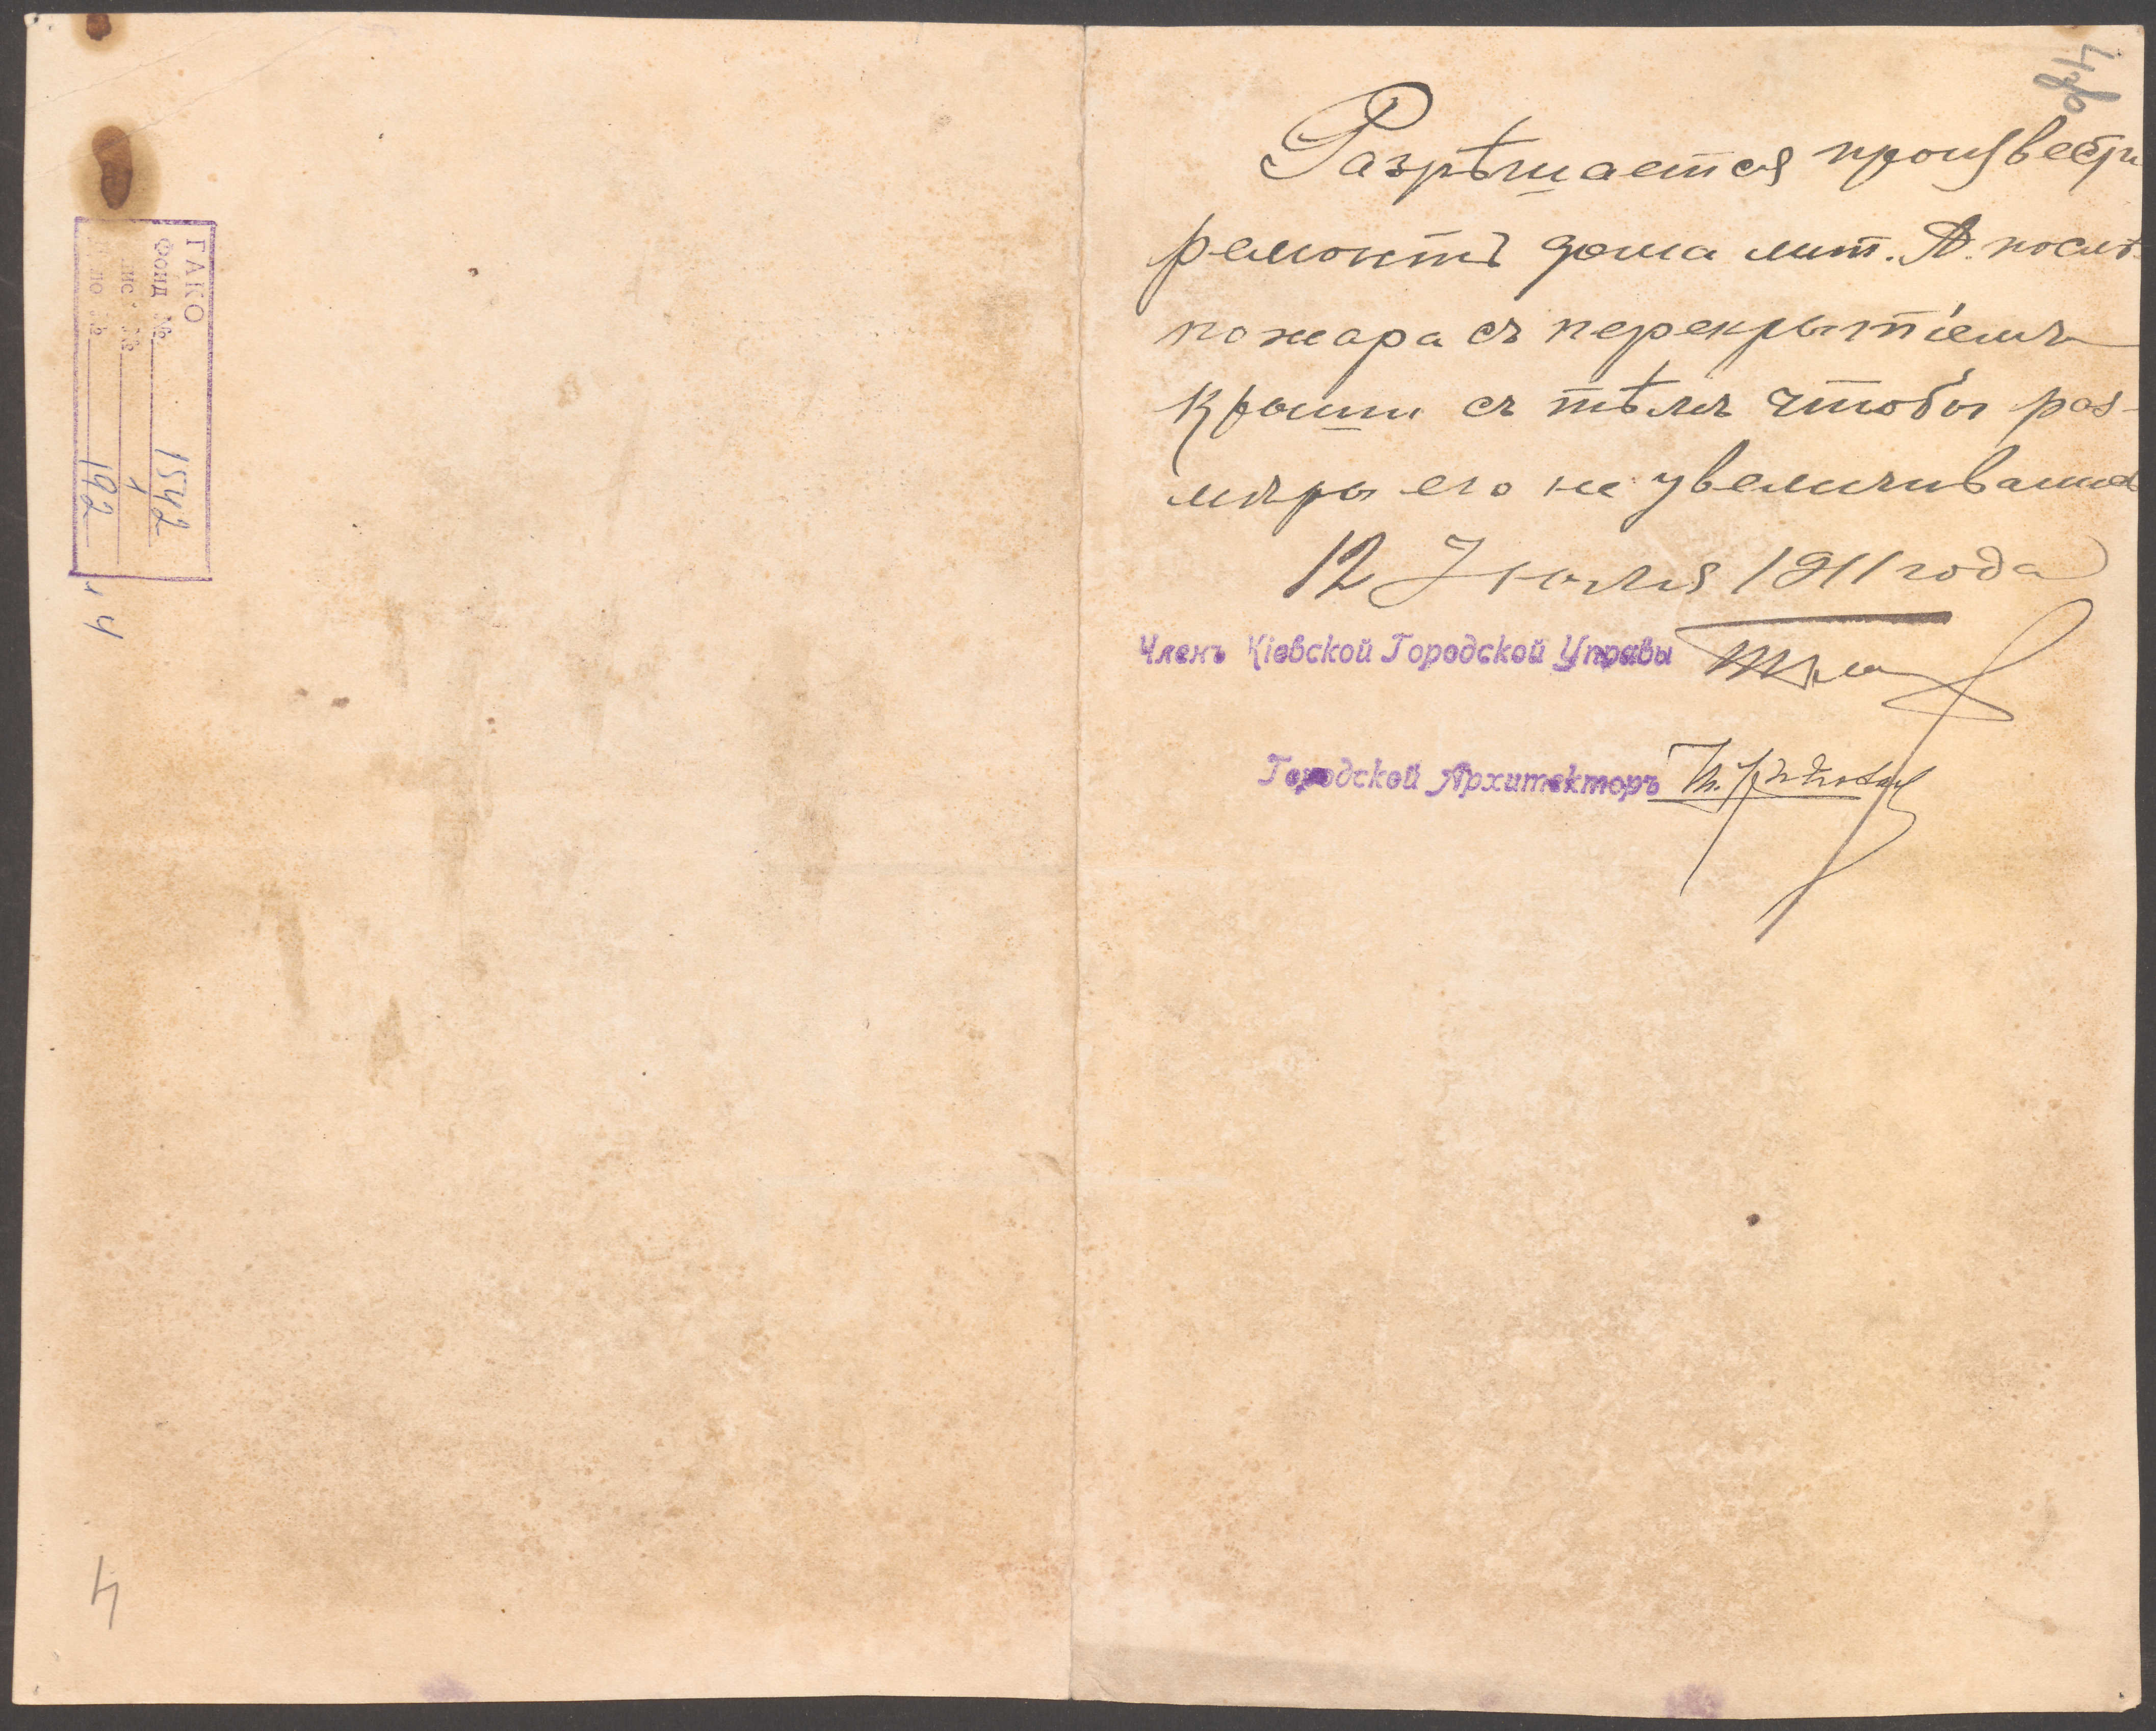 ГАКО
Фонд № 1542
1
192
4
4
Разрѣшается произвести
ремонтъ дома лит. А. послѣ
пожара съ перекрытіемъ
крыши съ тѣмъ чтобы раз-
мѣры его не увеличивались
12 Іюля 1911 года
Членъ Кіевской Городской Управы
Городской Архитекторъ